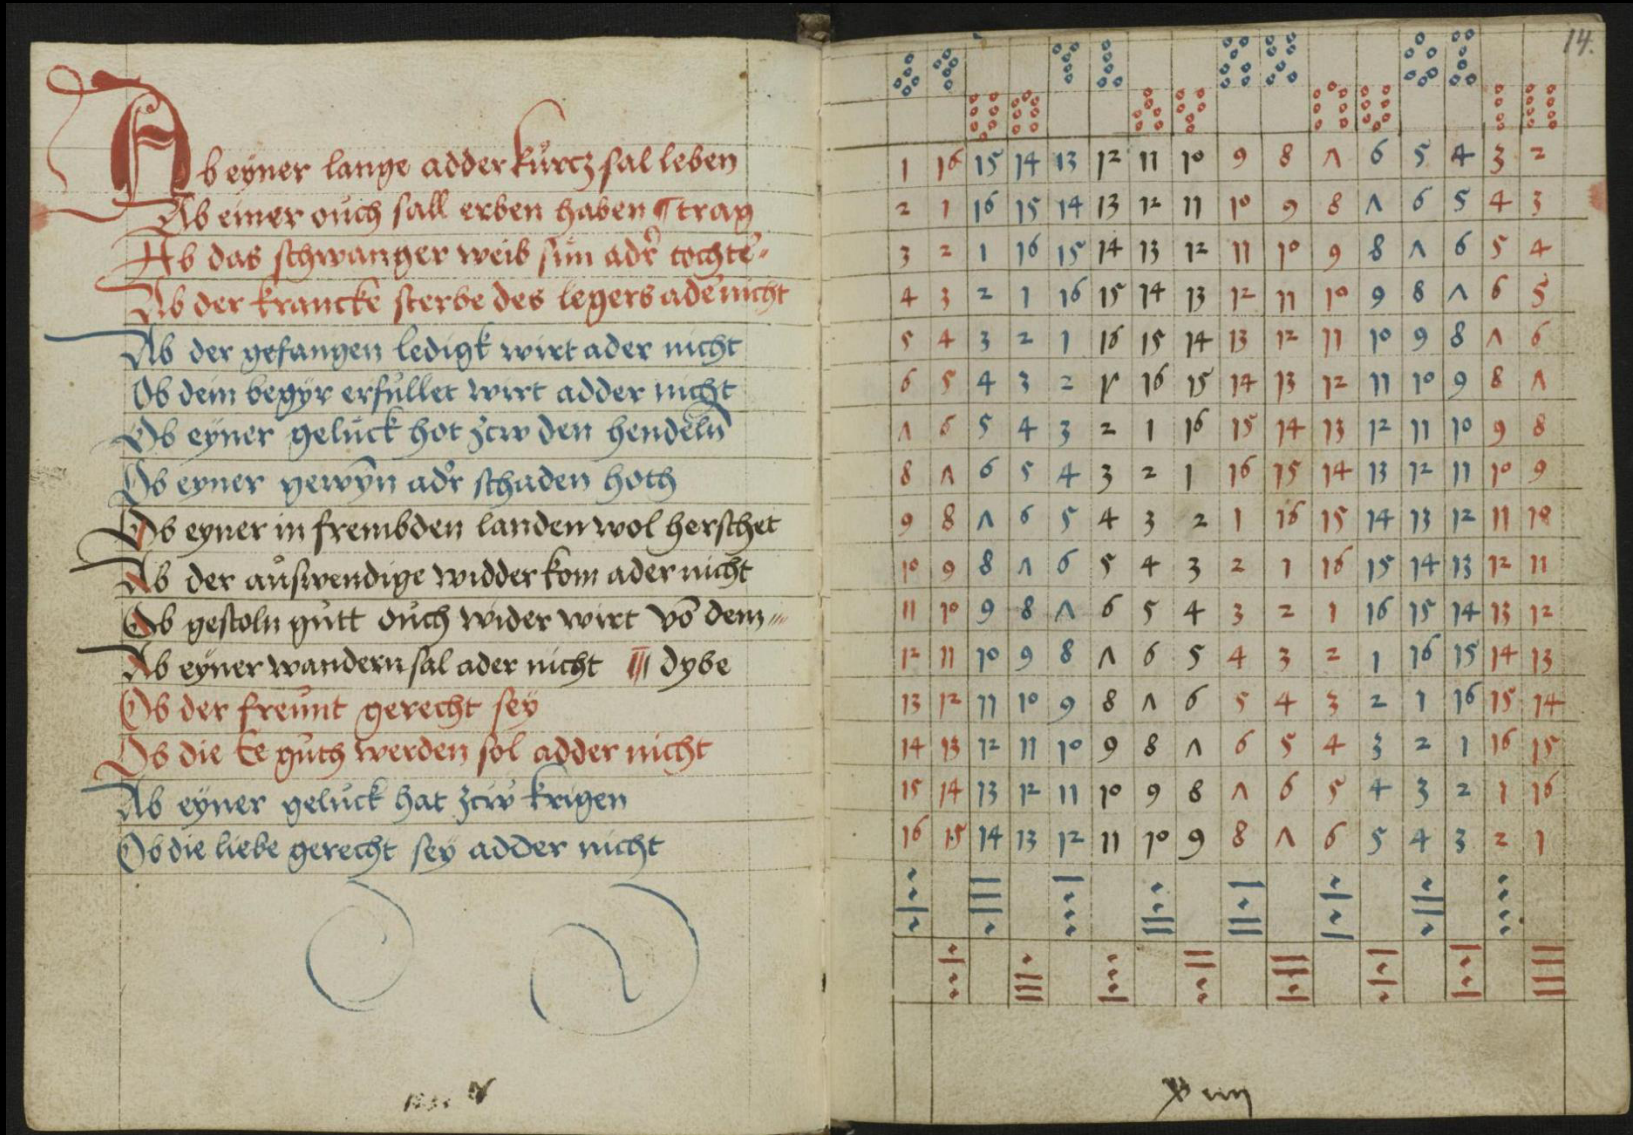 Ab eyner lange adder kůrcz sal leben
Ab einer oůch sall erben haben ¶ trag
Ab das schwanger weib sůn adr tochte
Ab der krancke sterbe des legers ade nicht
Ab der gefangen ledigk wirt ader nicht
Ob dem begyr erfůllet wirt adder nicht
Ob eyner gelůck hot zcw den hendeln
Ob eyner gewyn adr schaden hoth
Ob eyner in frembden landen wol herschet
Ab der aůswendige widder kom ader nicht
Ob gestoln gůtt oůch wider wirt vō dem
Ab eyner wandern sal ader nicht dybe
Ob der freůnt gerecht sey
Ob die Ee gůth werden sol adder nicht
Ab eyner gelůck hat zcw krigen
Ob die liebe gerecht sey adder nicht
14.
1 16 15 14 13 12 11 10 9 8 Λ 6 5 4 3 2
2 1 16 15 14 13 12 11 10 9 8 Λ 6 5 4 3
3 2 1 16 15 14 13 12 11 10 9 8 Λ 6 5 4
4 3 2 1 16 15 14 13 12 11 10 9 8 Λ 6 5
5 4 3 2 1 16 15 14 13 12 11 10 9 8 Λ 6
6 5 4 3 2 1 16 15 14 13 12 11 10 9 8 Λ
Λ 6 5 4 3 2 1 16 15 14 13 12 11 10 9 8
8 Λ 6 5 4 3 2 1 16 15 14 13 12 11 10 9
9 8 Λ 6 5 4 3 2 1 16 15 14 13 12 11 10
10 9 8 Λ 6 5 4 3 2 1 16 15 14 13 12 11
11 10 9 8 Λ 6 5 4 3 2 1 16 15 14 13 12
12 11 10 9 8 Λ 6 5 4 3 2 1 16 15 14 13
13 12 11 10 9 8 Λ 6 5 4 3 2 1 16 15 14
14 13 12 11 10 9 8 Λ 6 5 4 3 2 1 16 15
15 14 13 12 11 10 9 8 Λ 6 5 4 3 2 1 16
16 15 14 13 12 11 10 9 8 Λ 6 5 4 3 2 1